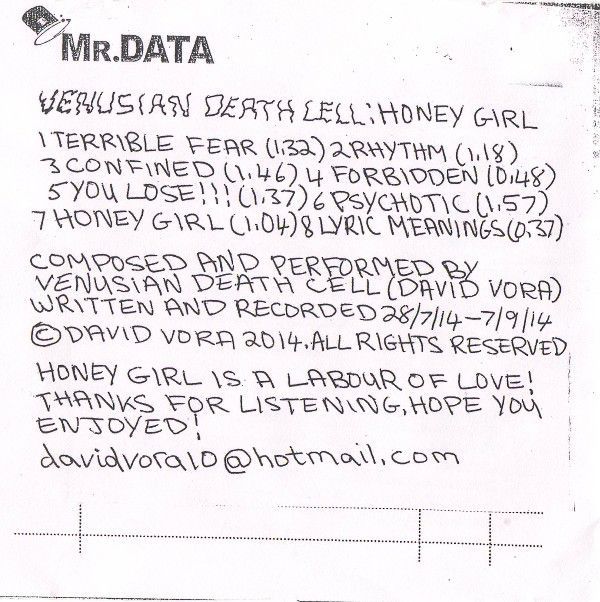 MR.DATA
VENUSIAN DEATH CELL:HONEY GIRL
1 TERRIBLE FEAR (1.32) 2 RHYTHM (1.18)
3 CONFINED (1.46) 4 FORBIDDEN (0.48)
5 YOU LOSE!!! (1.37) 6 PSYCHOTIC (1.57)
7 HONEY GIRL (1.04) 8 LYRIC MEANINGS (0.37)
COMPOSED AND PERFORMED BY
VENUSIAN DEATH CELL (DAVID VORA)
WRITTEN AND RECORDED 28/7/14-7/9/14
© DAVID VORA 2014. ALL RIGHTS RESERVED
HONEY GIRL IS A LABOUR OF LOVE!
THANKS FOR LISTENING, HOPE YOU
ENJOYED!
davidvora10@hotmail.com